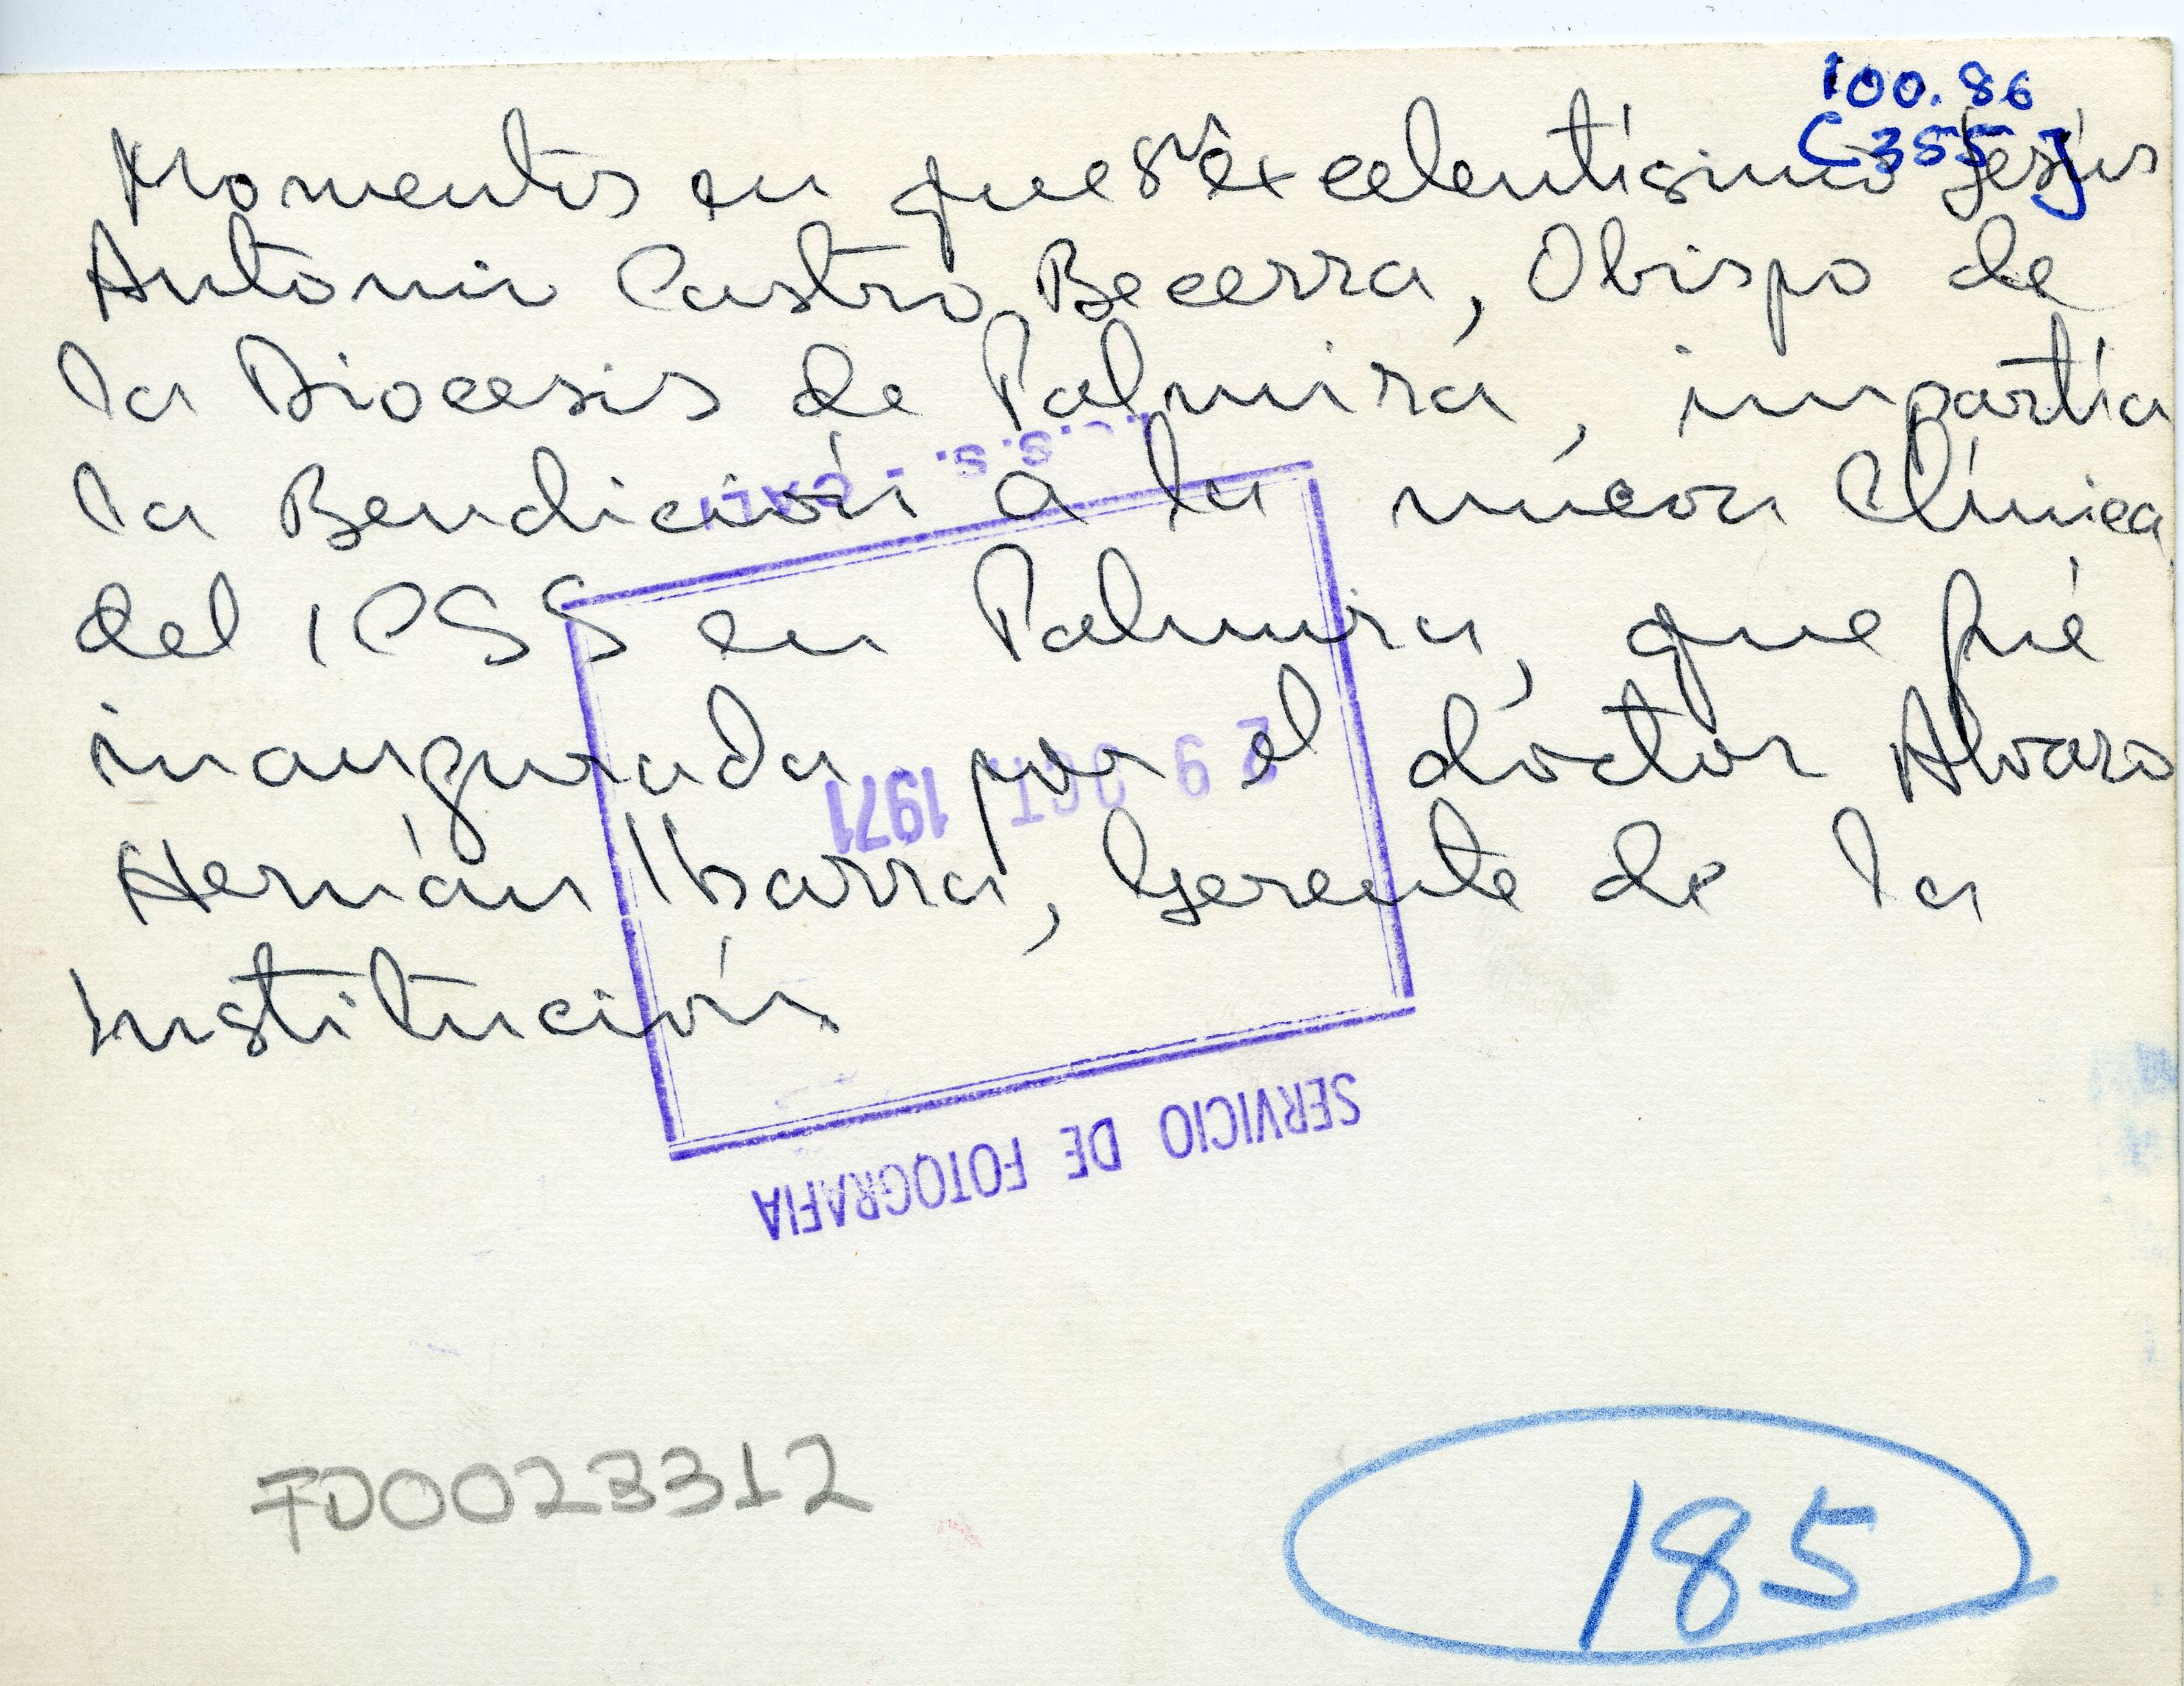 100.86
C355J
Momentos en que su excelentísimo Jesús
Antonio Castro Becerra, Obispo de
la Diocesis de Palmira, impartía
la Bendición a la nueva Clínica
del ICSS en Palmira, que fué
inaugurada por el doctor Alvaro
Hernán Ibarra, Gerente de la
Institución
I.C.S.S. - CALI
29 OCT 1971
SERVICIO DE FOTOGRAFIA
FD0023312
185